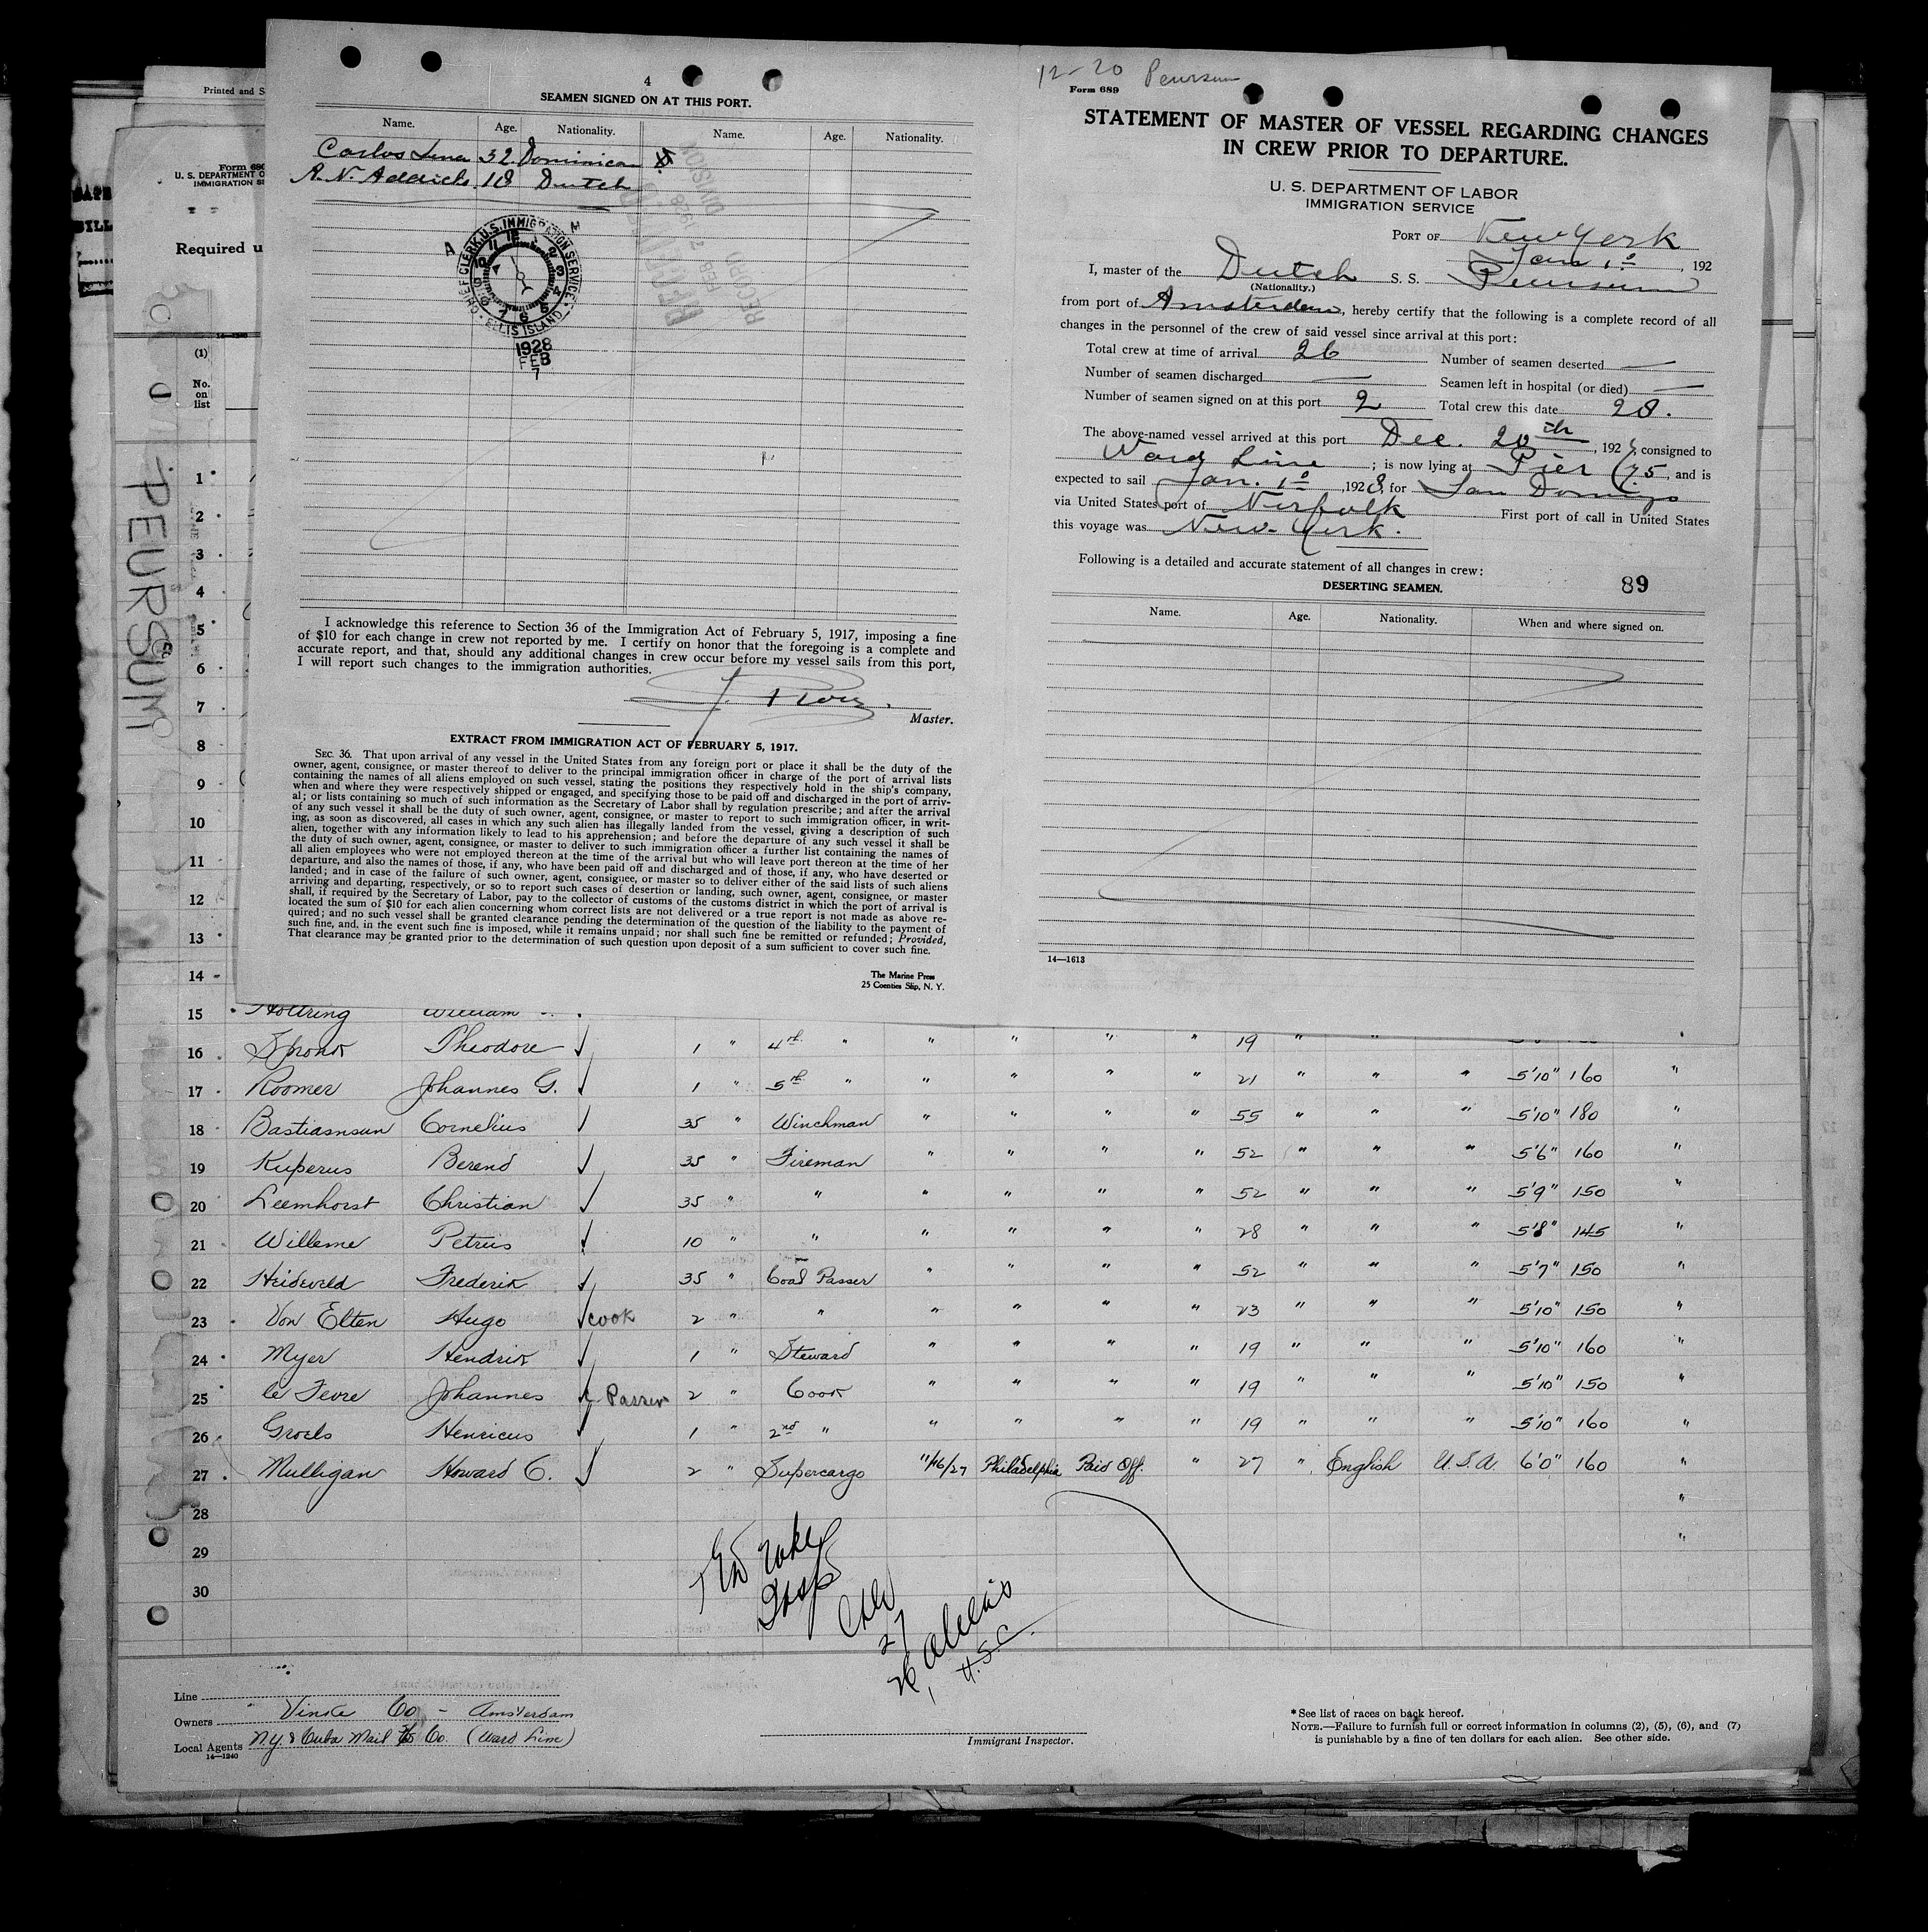 Printed and S
Form 690
U. S. DEPARTMENT O
IMMIGRATION SE
Required u
14—1240
(1)
No.
on
list
PEURSUM
4
SEAMEN SIGNED ON AT THIS PORT.
Name. Age. Nationality. Name. Age. Nationality.
Carlos 32 Dominican
A. N. 18 Dutch
CHIEF CLERK U.S. IMMIGRATION SERVICE
ELLIS ISLAND
1928
FEB
7
I acknowledge this reference to Section 36 of the Immigration Act of February 5, 1917, imposing a fine
of $10 for each change in crew not reported by me. I certify on honor that the foregoing is a complete and
accurate report, and that, should any additional changes in crew occur before my vessel sails from this port,
I will report such changes to the immigration authorities.
Master.
EXTRACT FROM IMMIGRATION ACT OF FEBRUARY 5, 1917.
SEC. 36. That upon arrival of any vessel in the United States from any foreign port or place it shall be the duty of the
owner, agent, consignee, or master thereof to deliver to the principal immigration officer in charge of the port of arrival lists
containing the names of all aliens employed on such vessel, stating the positions they respectively hold in the ship's company,
when and where they were respectively shipped or engaged, and specifying those to be paid off and discharged in the port of arriv-
al; or lists containing so much of such information as the Secretary of Labor shall by regulation prescribe; and after the arrival
of any such vessel it shall be the duty of such owner, agent, consignee, or master to report to such immigration officer, in writ-
ing, as soon as discovered, all cases in which any such alien has illegally landed from the vessel, giving a description of such
alien, together with any information likely to lead to his apprehension; and before the departure of any such vessel it shall be
the duty of such owner, agent, consignee, or master to deliver to such immigration officer a further list containing the names of
all alien employees who were not employed thereon at the time of the arrival but who will leave port thereon at the time of her
departure, and also the names of those, if any, who have been paid off and discharged and of those, if any, who have deserted or
landed; and in case of the failure of such owner, agent, consignee, or master so to deliver either of the said lists of such aliens
arriving and departing, respectively, or so to report such cases of desertion or landing, such owner, agent, consignee, or master
shall, if required by the Secretary of Labor, pay to the collector of customs of the customs district in which the port of arrival is
located the sum of $10 for each alien concerning whom correct lists are not delivered or a true report is not made as above re-
quired; and no such vessel shall be granted clearance pending the determination of the question of the liability to the payment of
such fine, and, in the event such fine is imposed, while it remains unpaid; nor shall such fine be remitted or refunded; Provided,
That clearance may be granted prior to the determination of such question upon deposit of a sum sufficient to cover such fine.
The Marine Press
25 Coenties Slip, N. Y.
12-20 Peursum
Form 689
STATEMENT OF MASTER OF VESSEL REGARDING CHANGES
IN CREW PRIOR TO DEPARTURE.
U. S. DEPARTMENT OF LABOR
IMMIGRATION SERVICE
PORT OF New York
Jan 1º, 192
I, master of the Dutch S. S. Peursum
(Nationality.)
from port of Amsterdam, hereby certify that the following is a complete record of all
changes in the personnel of the crew of said vessel since arrival at this port:
Total crew at time of arrival 26 Number of seamen deserted —
Number of seamen discharged — Seamen left in hospital (or died) —
Number of seamen signed on at this port 2 Total crew this date 28.
The above-named vessel arrived at this port Dec. 20th, 192 , consigned to
Ward Line ; is now lying at Pier , and is
expected to sail Jan. 1º, 1928, for San Domingo
via United States port of Norfolk First port of call in United States
this voyage was New-York.
Following is a detailed and accurate statement of all changes in crew:
DESERTING SEAMEN. 89
Name. Age. Nationality. When and where signed on.
14—1613
1
2
3
4
5
6
7
8
9
10
11
12
13
14
15 Holtring William
16 Spronk Theodore 1 " 4th " " " " " 19 " "
17 Roomer Johannes G. 1 " 5th " " " " " 21 " " " 5'10" 160 "
18 Bastiasnsun Cornelius 35 " Winchman " " " " 55 " " " 5'10" 180 "
19 Kuperus Berend 35 " Fireman " " " " 52 " " " 5'6" 160 "
20 Leemhorst Christian 35 " " " " " " 52 " " " 5'9" 150 "
21 Willeme Petrus 10 " " " " " " 28 " " " 5'8" 145 "
22 Heideveld Frederik 35 " Coal Passer " " " " 52 " " " 5'7" 150 "
23 Von Elten Hugo cook 2 " " " " " " 23 " " " 5'10" 150 "
24 Myer Hendrik 1 " Steward " " " " 19 " " " 5'10" 160 "
25 le Fevre Johannes Passer 2 " Cook " " " " 19 " " " 5'10" 150 "
26 Groels Henricus 1 " 2nd " " " " " 19 " " " 5'10" 160 "
27 Mulligan Howard C. 2 " Supercargo 11/16/27 Philadelphia Paid Off. " 27 " English U.S.A 6'0" 160 "
28 "
29 "
30
27
26 aliens
U.S.C.
Line
Owners Vinke Co - Amsterdam
Local Agents N.Y. & Cuba Mail SS Co. (Ward Line)
14—1240
Immigrant Inspector.
* See list of races on back hereof.
NOTE.—Failure to furnish full or correct information in columns (2), (5), (6), and (7)
is punishable by a fine of ten dollars for each alien. See other side.